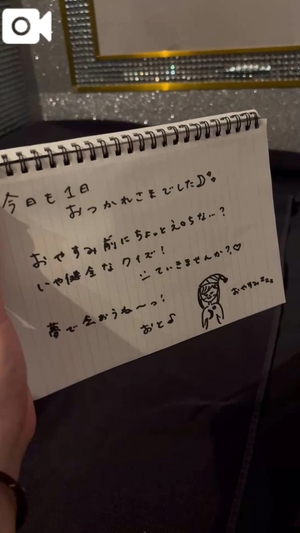 今日も1日
おつかれさまでした♪
おやすみ前にちょっとえっちな…?
いや健全なクイズ!
していきませんか?♡
夢で会おうね〜っ!
おと♪
おやすみzzz